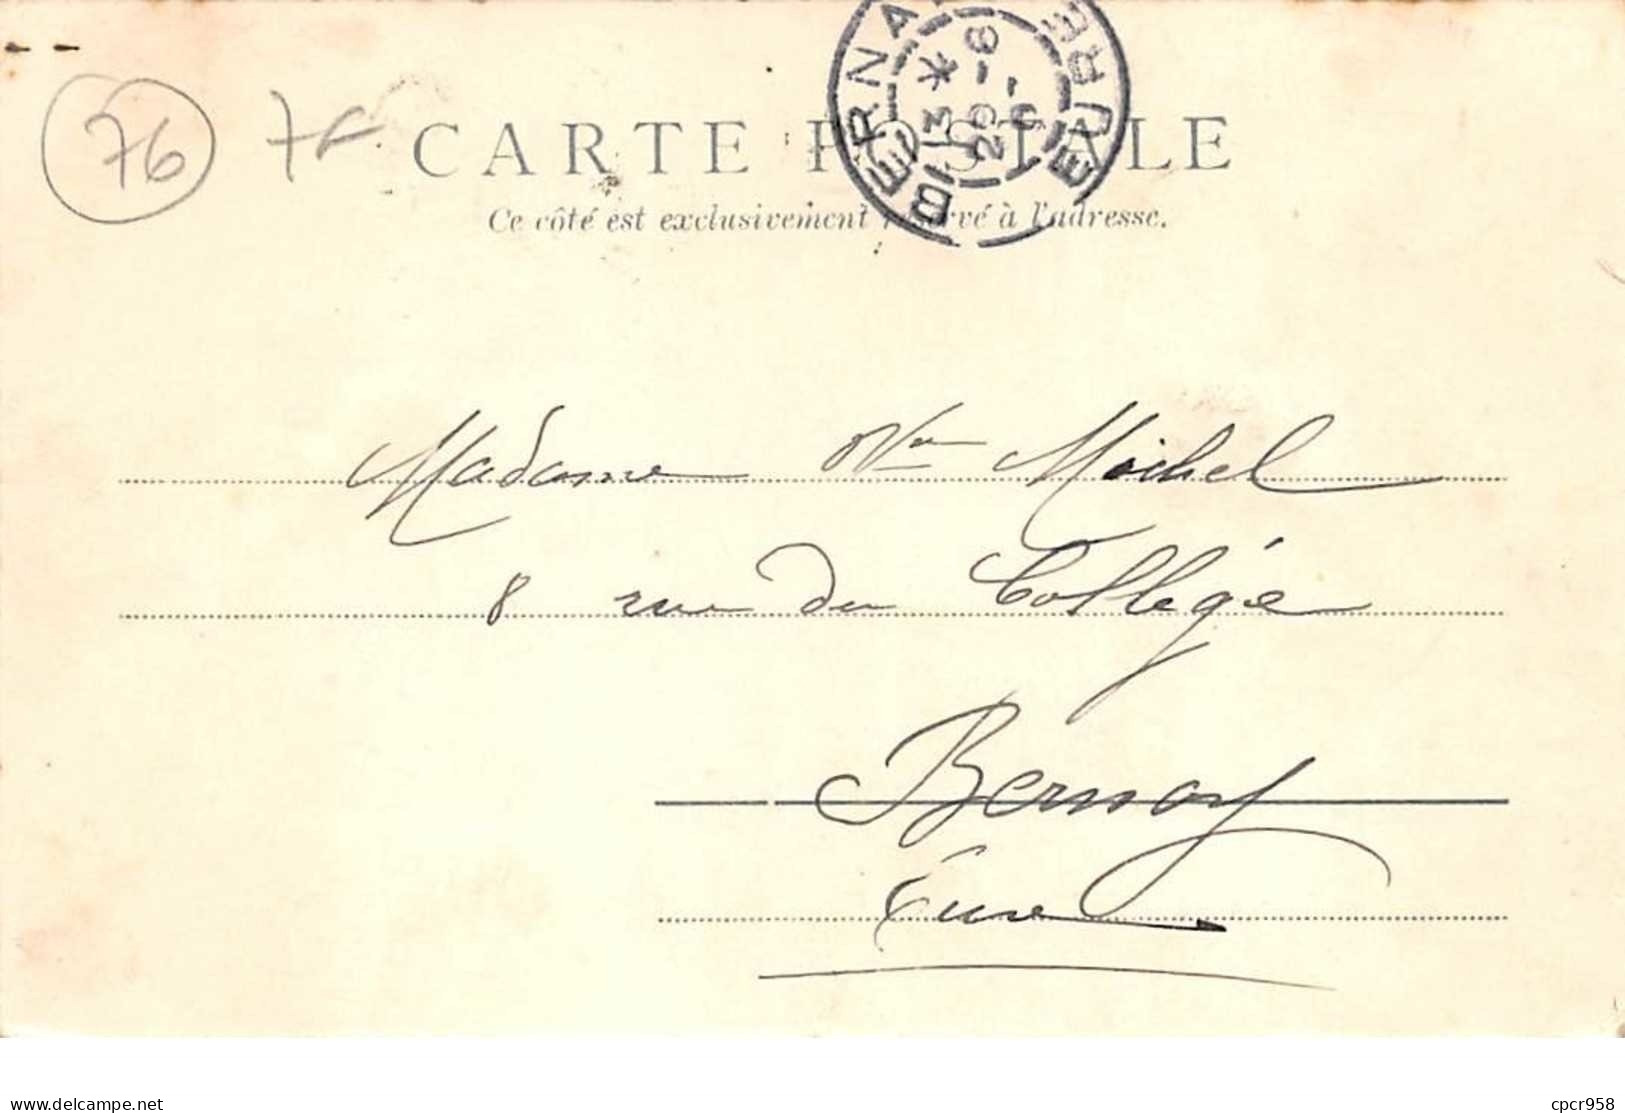 76 76
CARTE POSTALE
Ce côté est exclusivement réservé à l'adresse.
BERNAY EURE
13 * 29 - 8
Madame Vve Michel
8 rue du Collège
Bernay
Eure
www.delcampe.net cpcr958